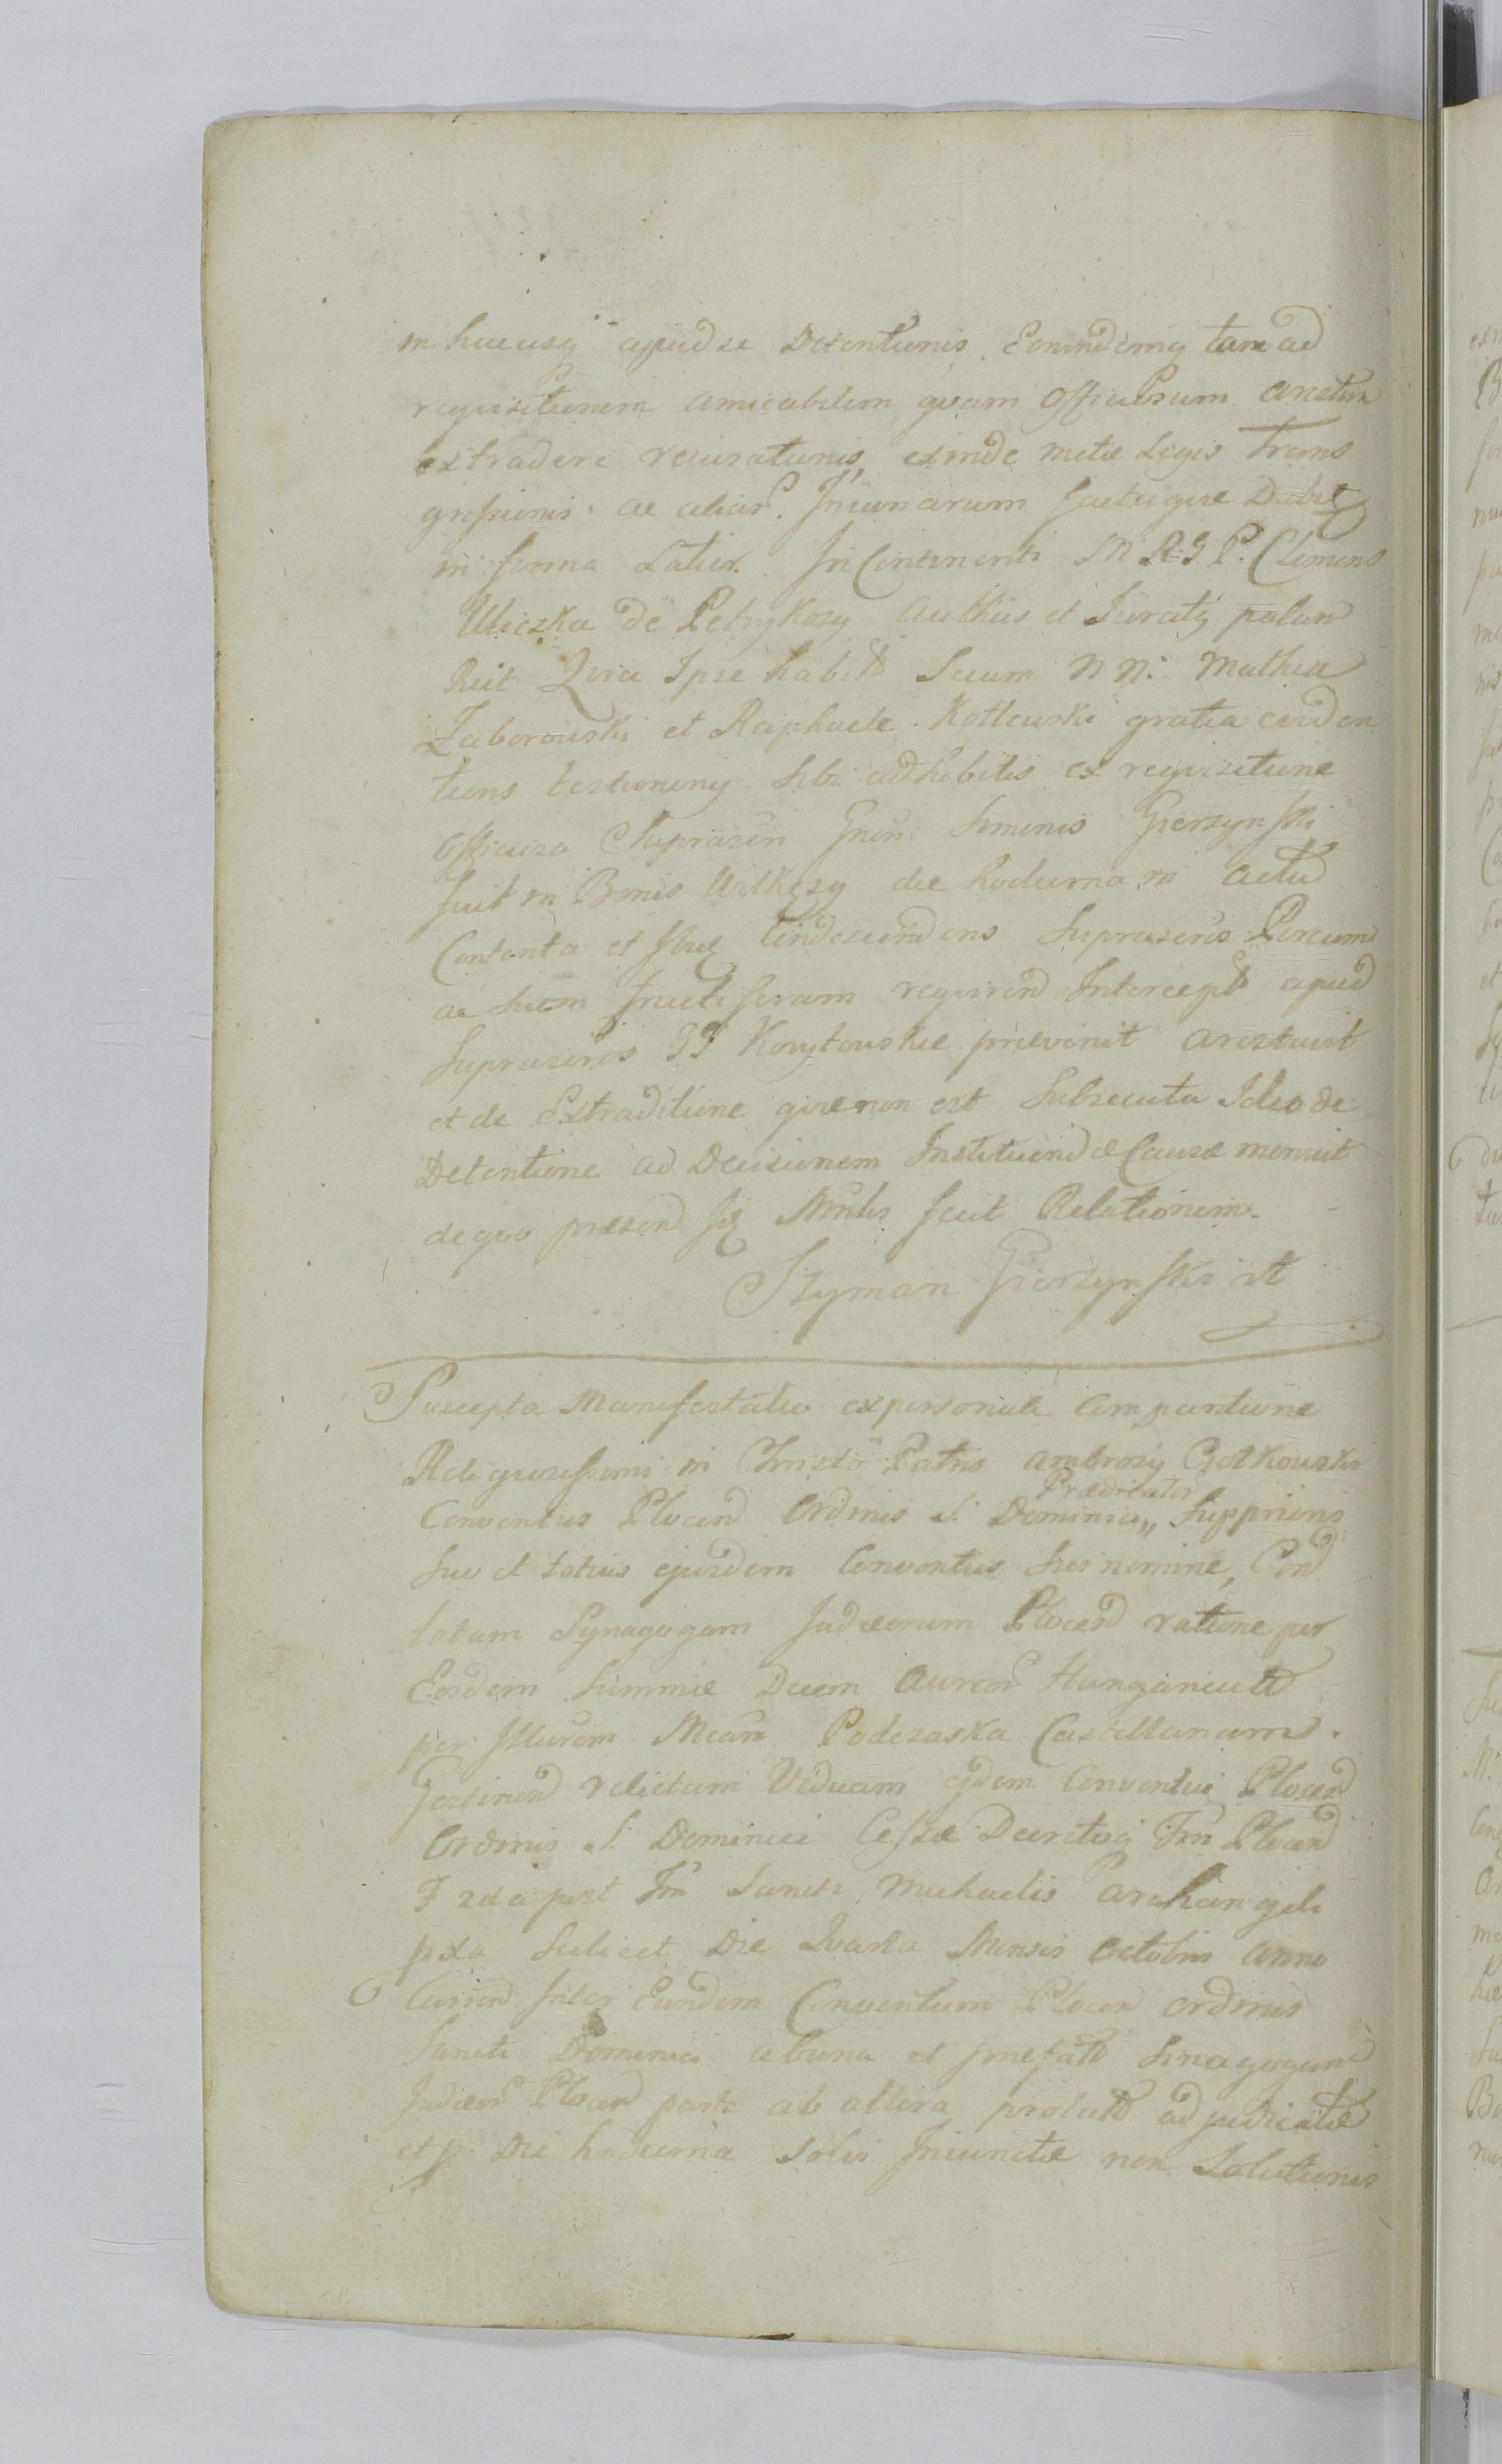 in hucusq apud se Detentionis Eorundemq tam ad
requisitionem amicabilem quam Officiosam
extradere recusationis exinde metæ Legis Trans
gressionis ac aliar. Iniuriarum factique
in forma Latior. In Continenti M R. G P. Clemens
Uliczka de Petrykozy authus et Iuratq palam
Reit Quia Ipse habito Secum N N: Mathia
Zaborowski et Raphaele Kotlewski gratia eviden
tioris testimonij sibi adhibitis ex requisitione
officiosa Suprascri Gnosi Simonis Gierzynski
fuit in Bonis Wilkęsy die hodierna in actu
Contenta et condescendens Suprascros Porcum
ac Suem fructiferam requirend Intercept apud
Suprascros GG Korytowskie prævenit arestavit
et de Extraditione quæ non est Subsecuta Ideo de
Detentione ad Decisionem Instituendæ Causæ monuit
de quo præsen Mnlis fecit Relationem.
Szyman Gierzynski
Suscepta Manifestatio ex personali Comparitione
Religiosissimi in Christo Patris Ambrosij
Prædicator
Conventus Plocen Ordinis S. Dominici Supprioris
suo et totius ejusdem Conventus sui nomine, Con
totam Synagogam Judæorum Plocen ratione per
Eosdem Summæ Decem Aureor Hungaricali
per Podczaska Castellanam
Gostinen relictam Viduam ejdem Conventui Plocen
Ordinis S. Dominici Cessæ Decretoq Trii Plocen
F 2da post Fm Sancti Michaelis Archangeli
pxa Scilicet Die Quarta Mensis Octobris anno
Curren Inter Eundem Conventum Plocen ordinis
Sancti Dominici ab una et præfato Sinagogam
Judæor Plocen parte ab altera prolato adjudicatæ
et p Die hodierna Solvi Iniunctæ non Solutionis